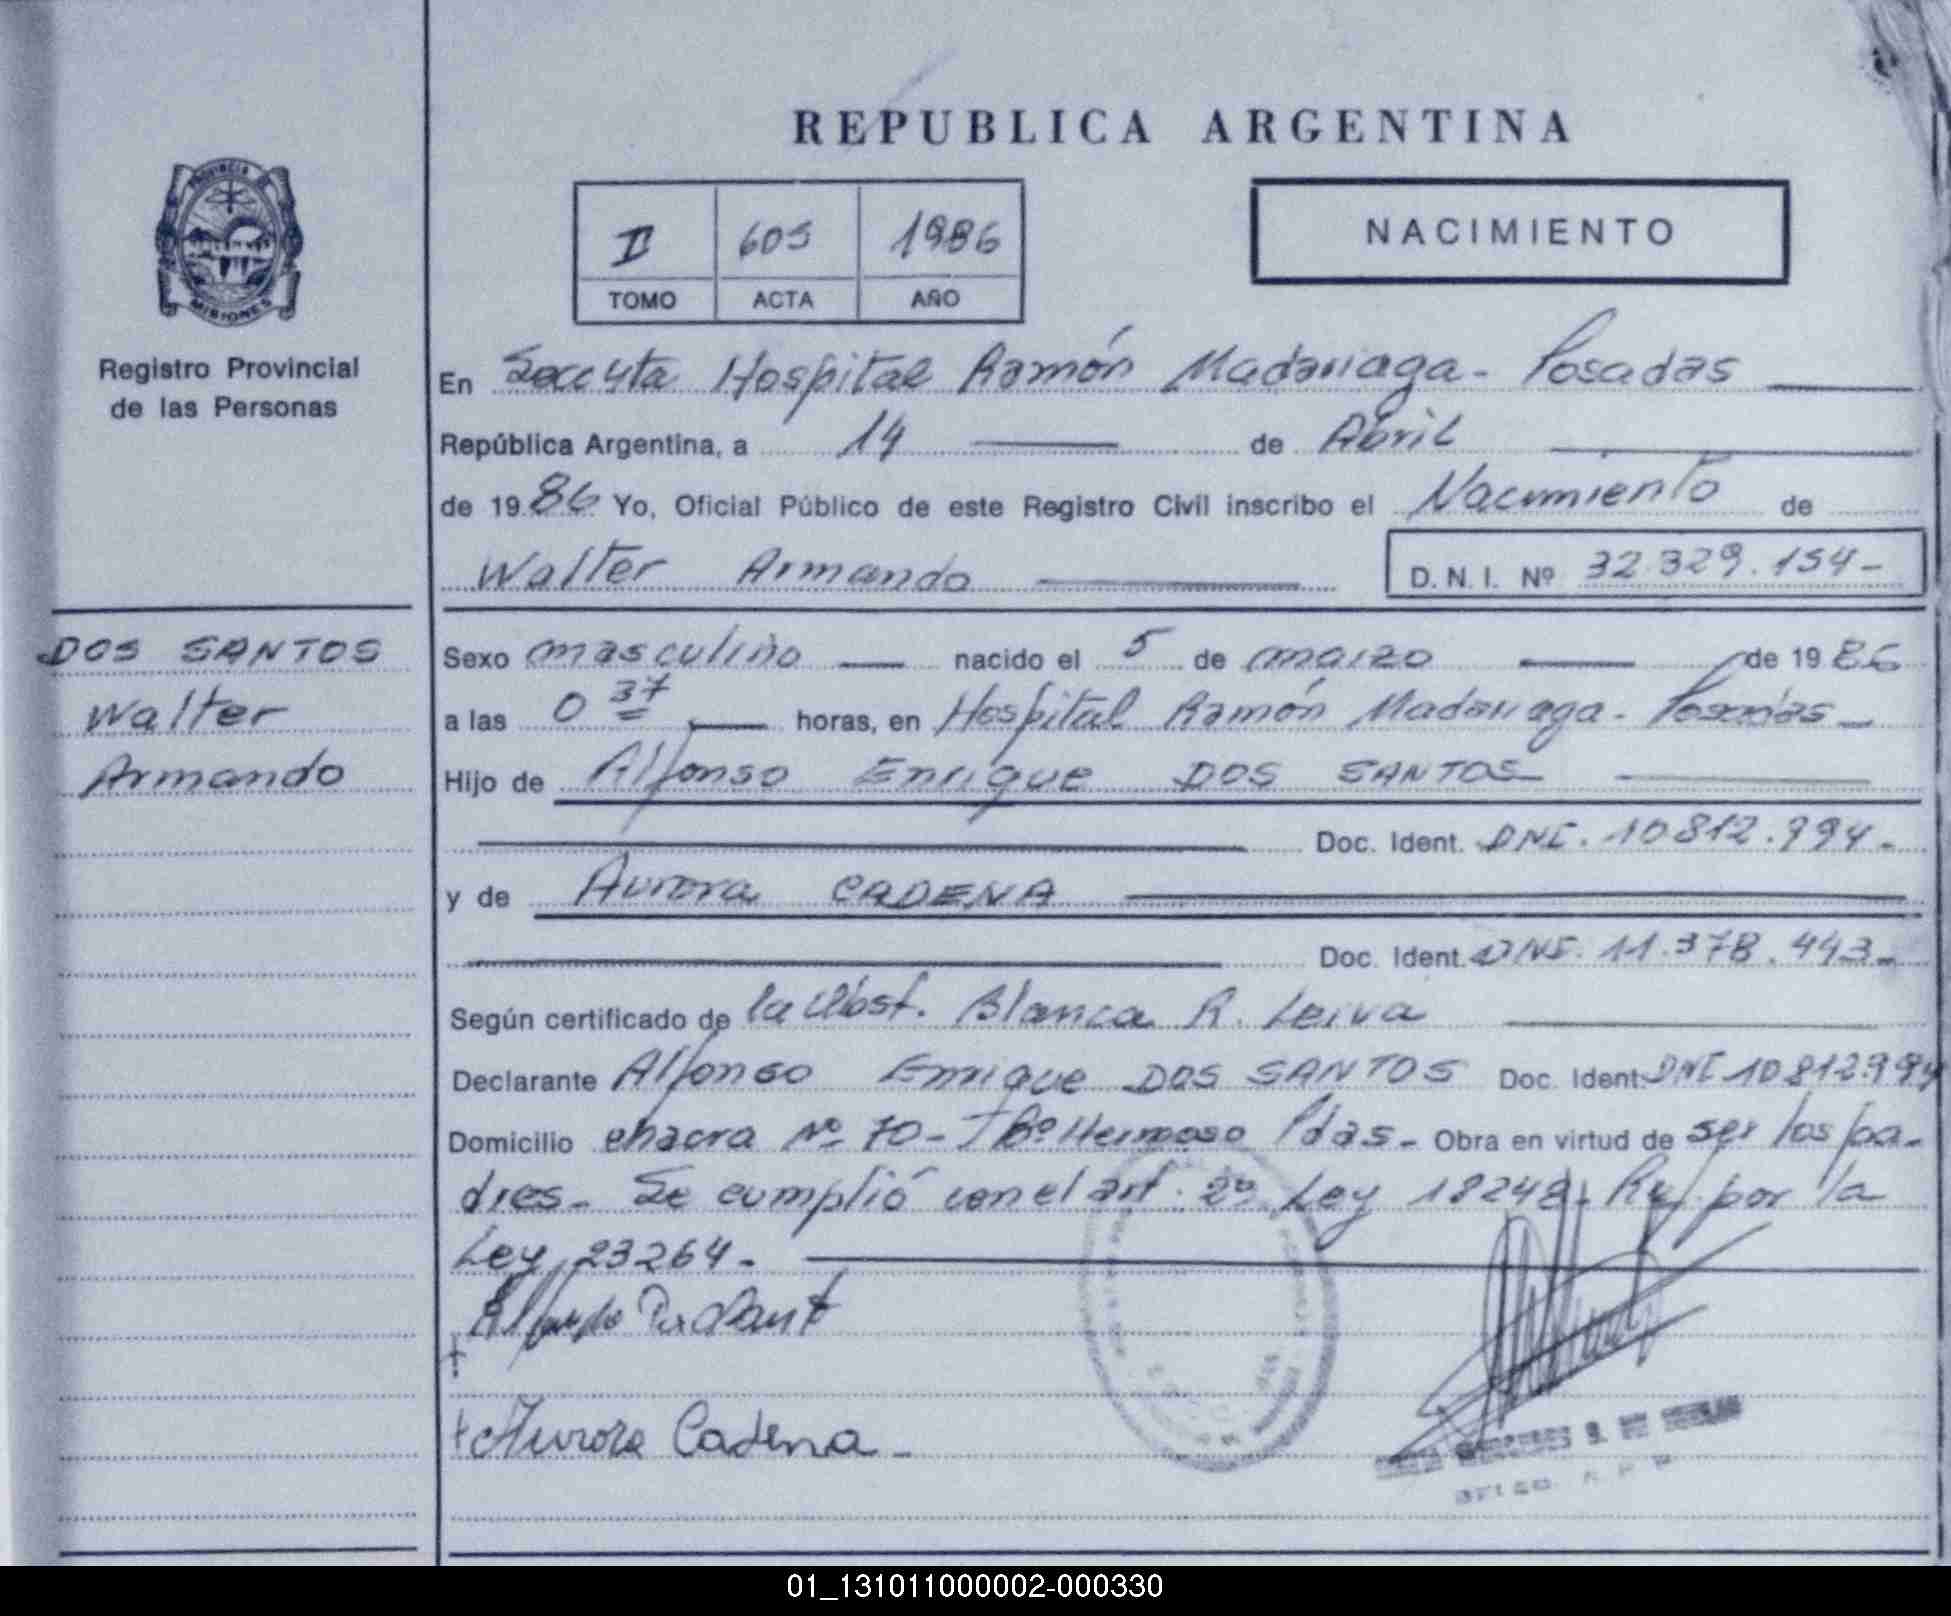 REPUBLICA ARGENTINA
PROVINCIA DE
MISIONES
Registro Provincial
de las Personas
II 605 1986
TOMO ACTA AÑO
NACIMIENTO
En Secc 4ta Hospital Ramón Madariaga - Posadas
República Argentina, a 14 de Abril
de 1986 Yo, Oficial Público de este Registro Civil inscribo el Nacimiento de
Walter Armando D.N.I. Nº 32.329.154-
DOS SANTOS
Walter
Armando
Sexo masculino nacido el 5 de marzo de 1986
a las 0 37 horas, en Hospital Ramón Madariaga - Posadas -
Hijo de Alfonso Enrique DOS SANTOS
Doc. Ident. DNI. 10812.994-
y de Aurora CADENA
Doc. Ident. DNI. 11.378.443-
Según certificado de la Obst. Blanca R. Leiva
Declarante Alfonso Enrique DOS SANTOS Doc. Ident. DNI 10812.994
Domicilio chacra Nº 70 - Bº Hermoso Pdas. Obra en virtud de ser los pa-
dres - Se cumplió con el art. 2º Ley 18248. por la
Ley 23264 -
Aurora Cadena -
01_131011000002-000330